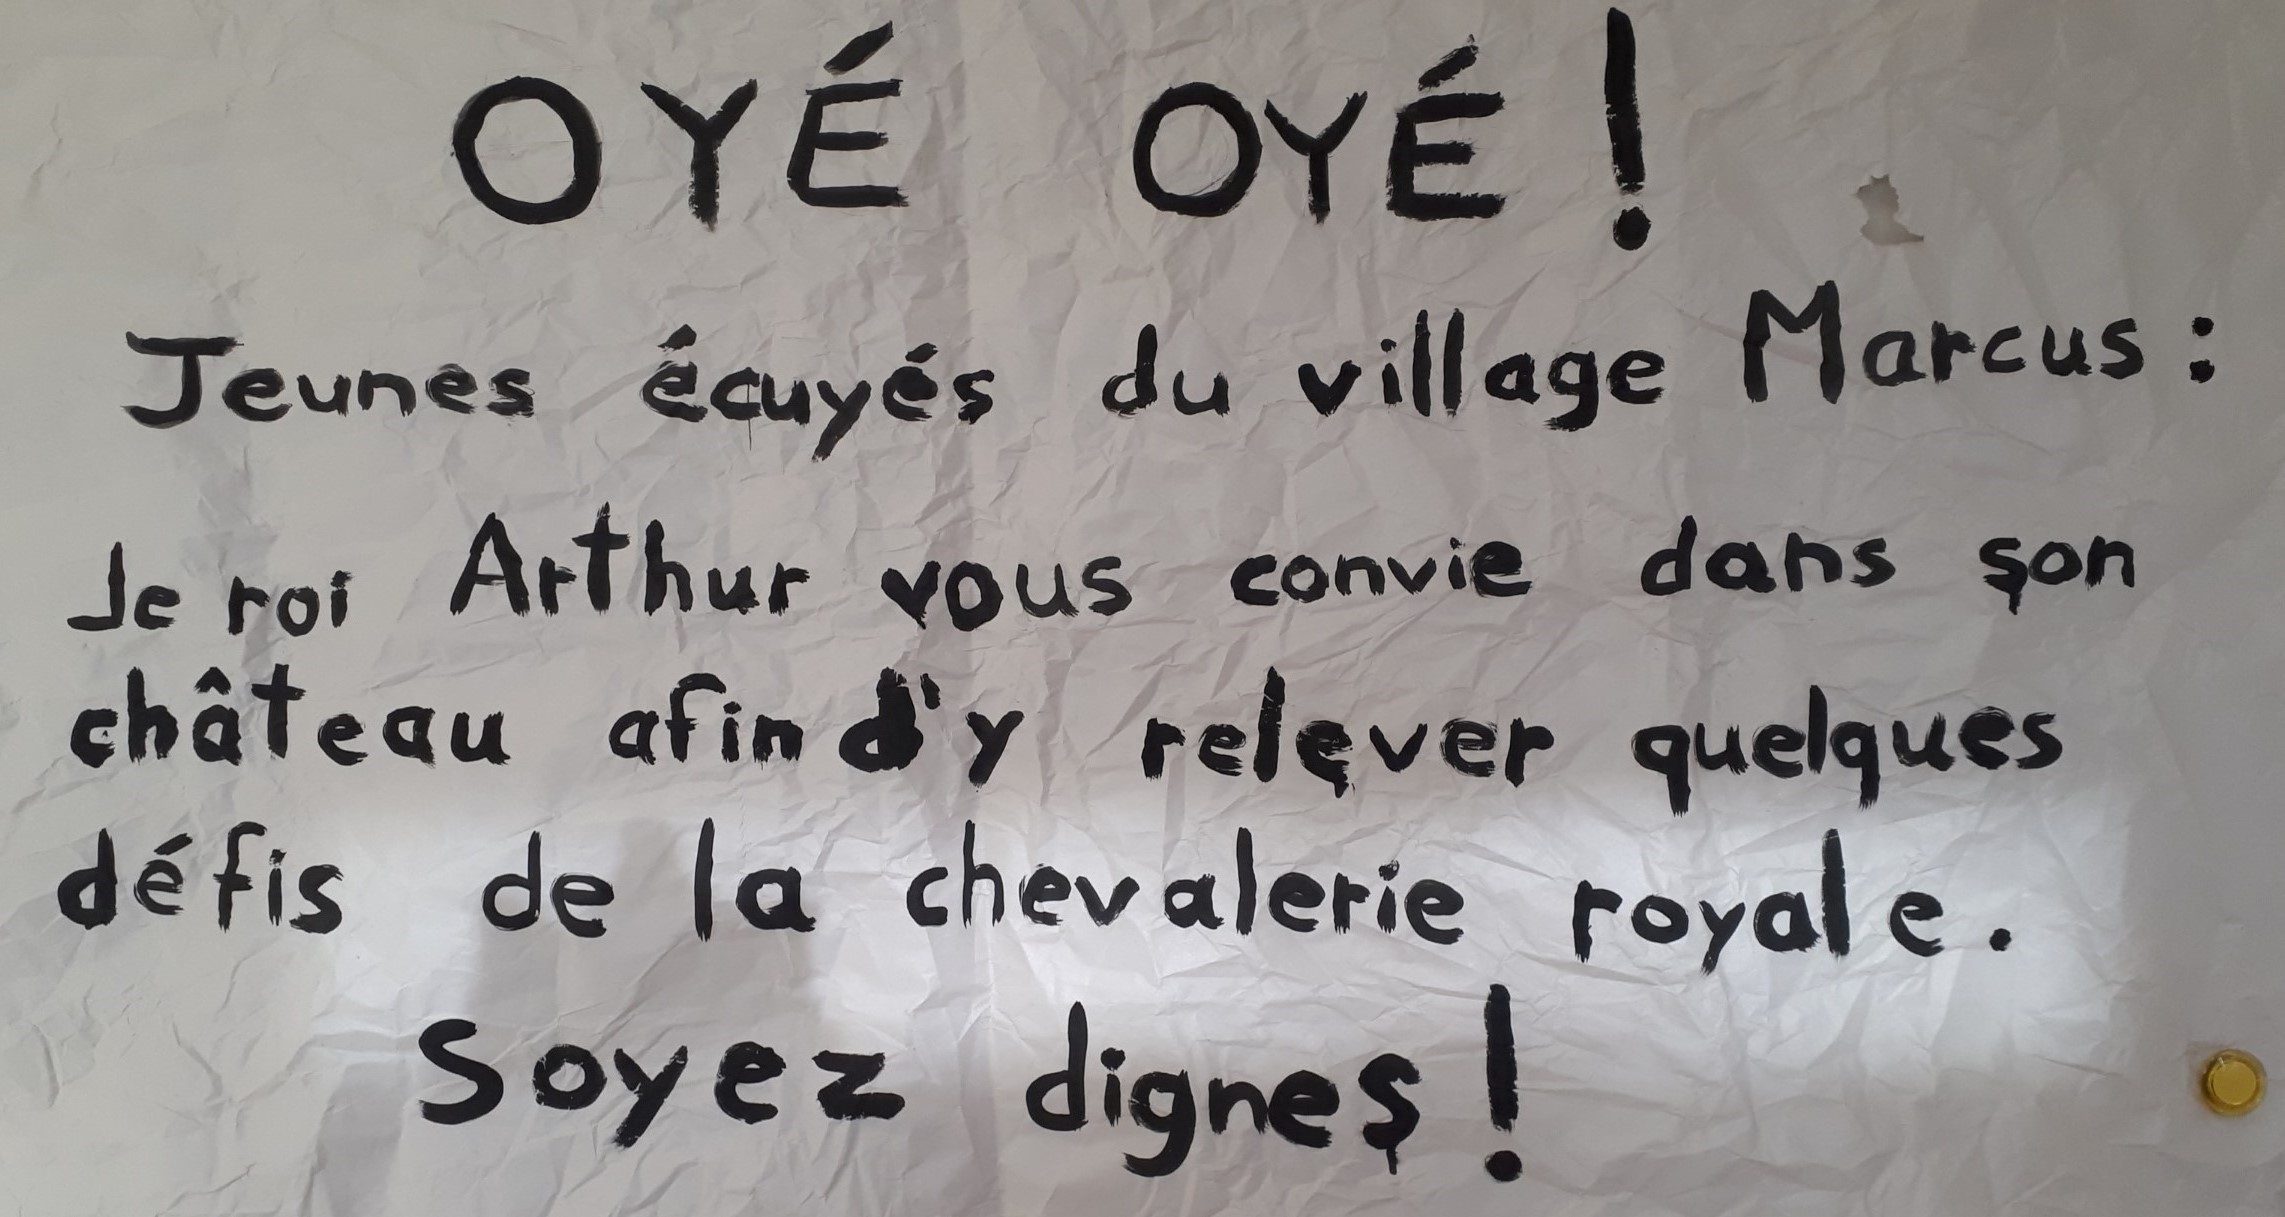 OYÉ OYÉ !
Jeunes écuyés du village Marcus :
le roi Arthur vous convie dans son
château afin d'y relever quelques
défis de la chevalerie royale.
Soyez dignes !